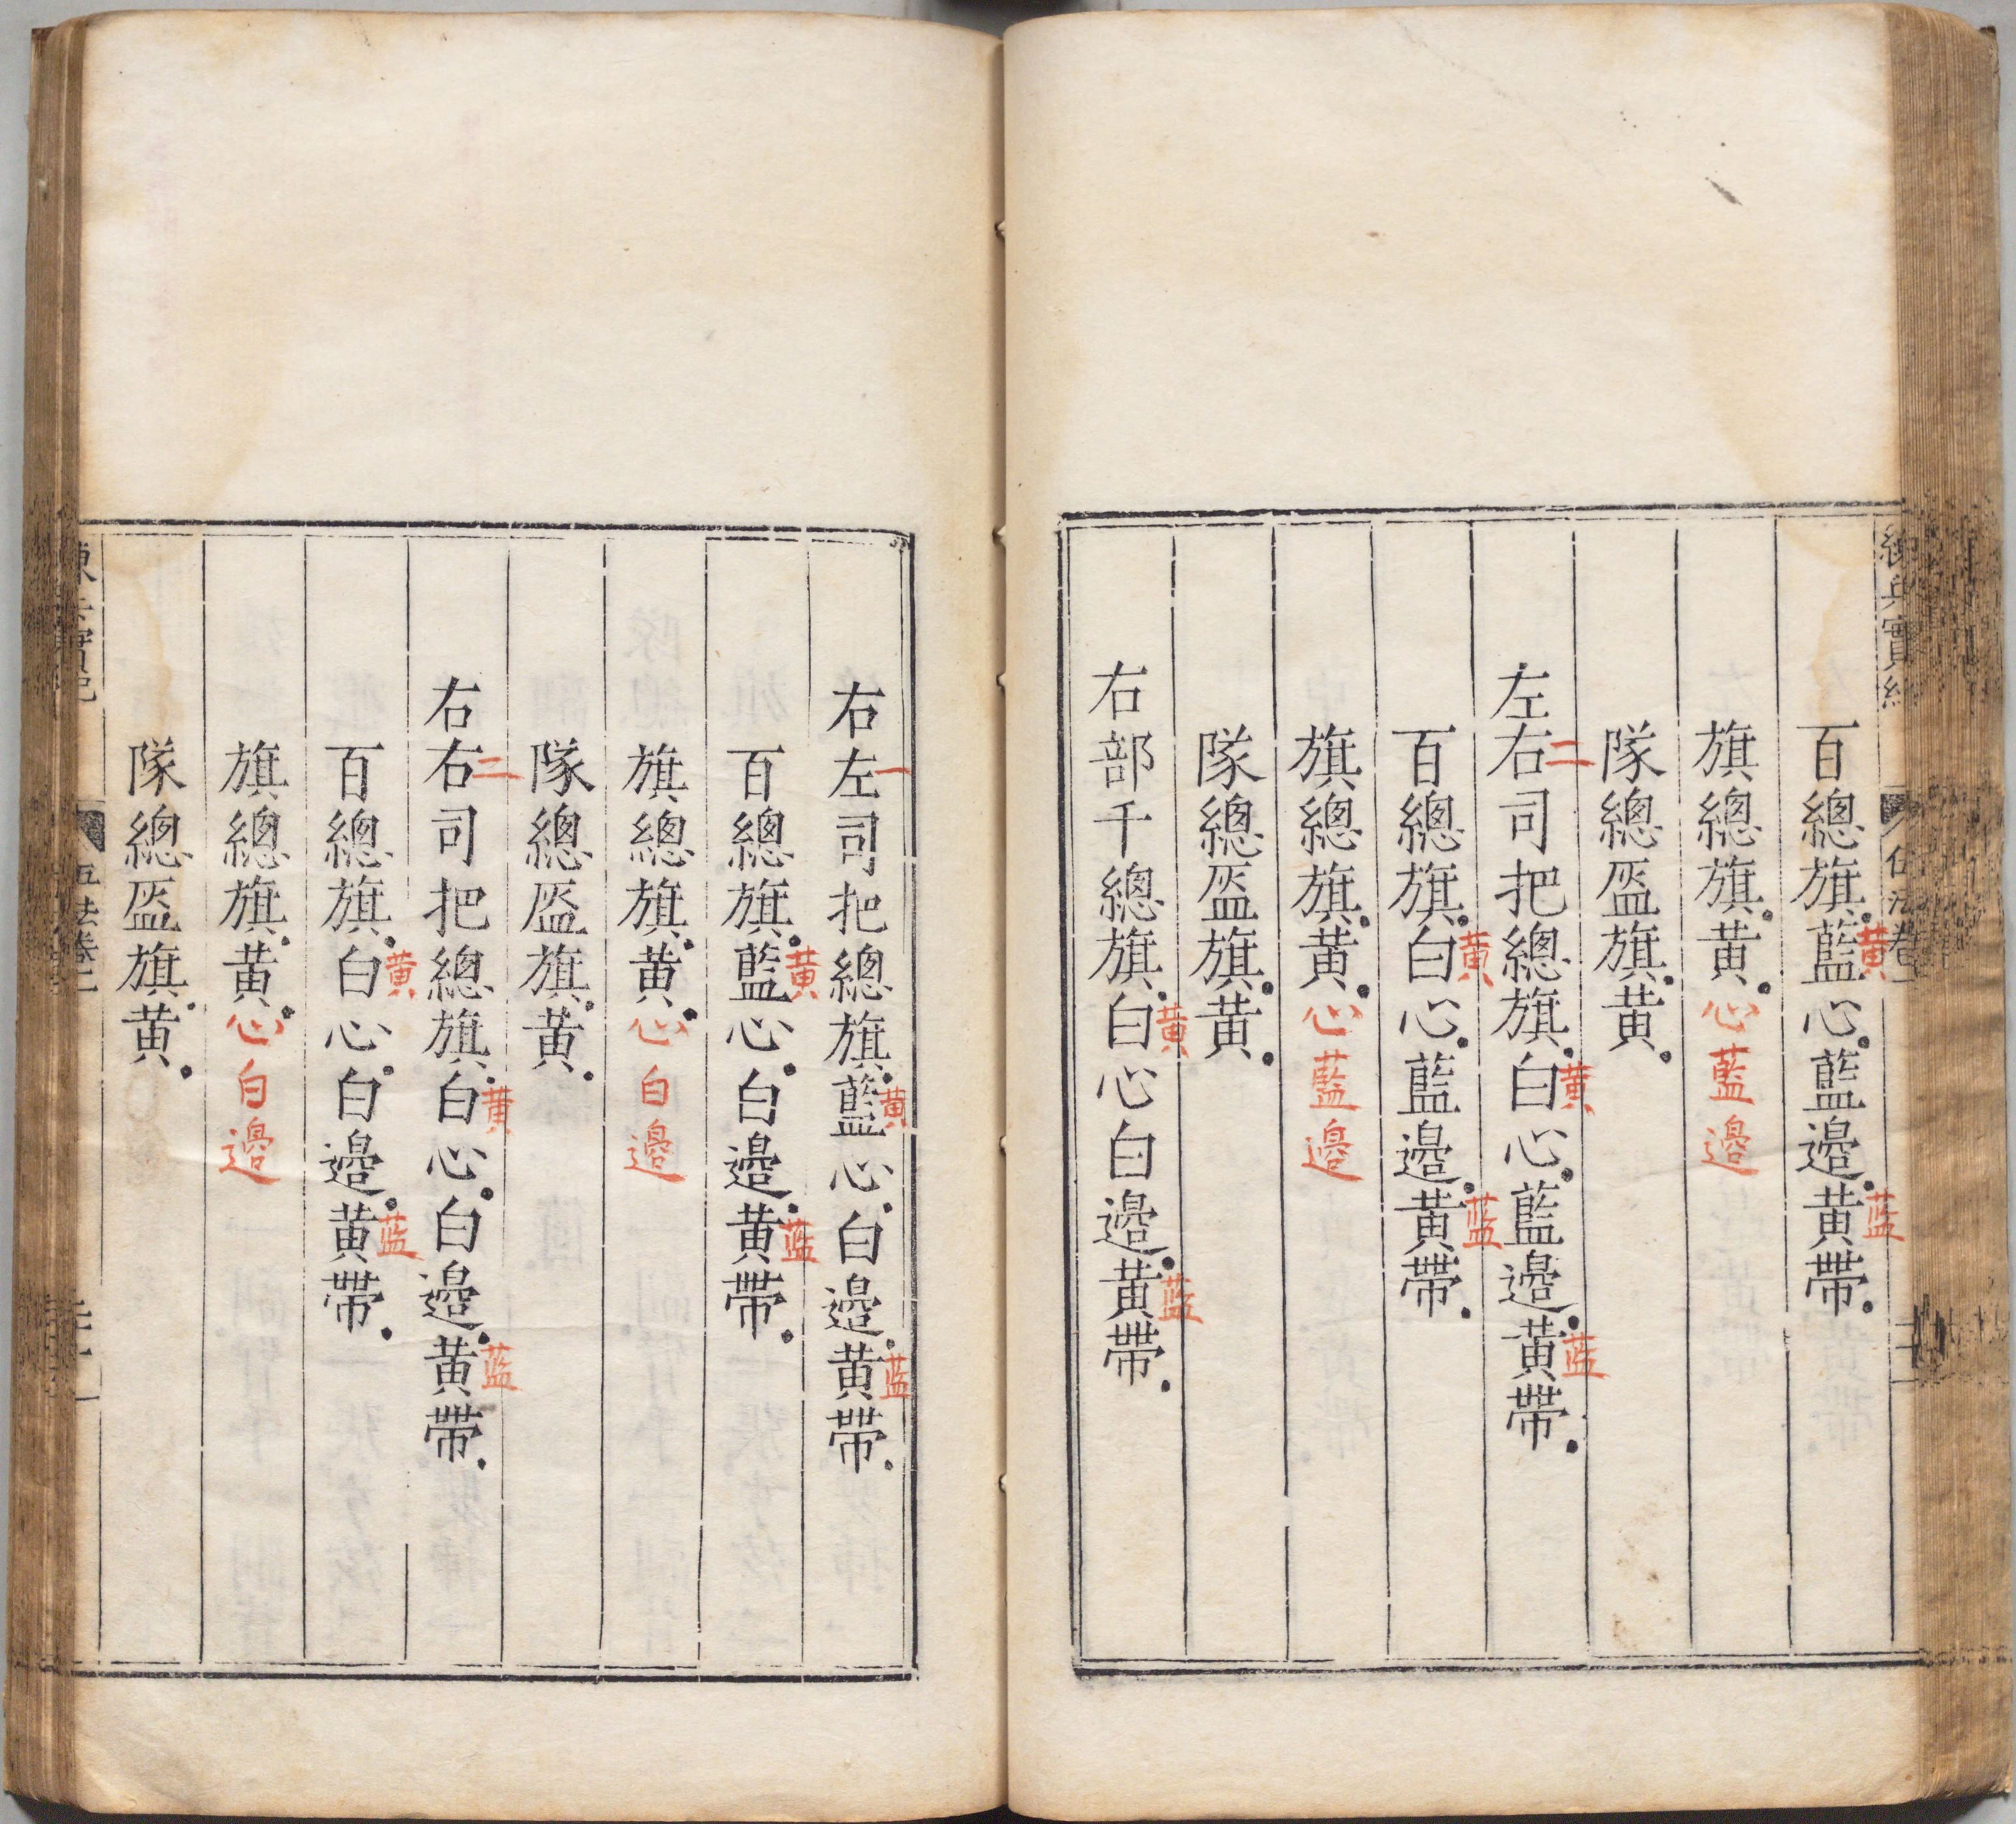 練兵實紀
百總旗藍心藍邊黃帶
黃
藍
旗總旗黃心藍邊
隊總盔旗黃
左右司把總旗白心藍邊黃帶
二
黃
藍
百總旗白心藍邊黃帶
黃
藍
旗總旗黃心藍邊
隊總盔旗黃
右部千總旗白心白邊黃帶
黃
藍
右左司把總旗藍心白邊黃帶
一
黃
藍
百總旗藍心白邊黃帶
黃
藍
旗總旗黃心白邊
隊總盔旗黃
右右司把總旗白心白邊黃帶
二
黃
藍
百總旗白心白邊黃帶
黃
藍
旗總旗黃心白邊
隊總盔旗黃